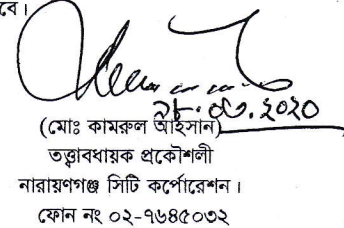 বে।
২৮.০৬.২০২০
(মোঃ কামরুল আহসান)
তত্ত্বাবধায়ক প্রকৌশলী
নারায়ণগঞ্জ সিটি কর্পোরেশন।
ফোন নং ০২-৭৬৪৫০৩২